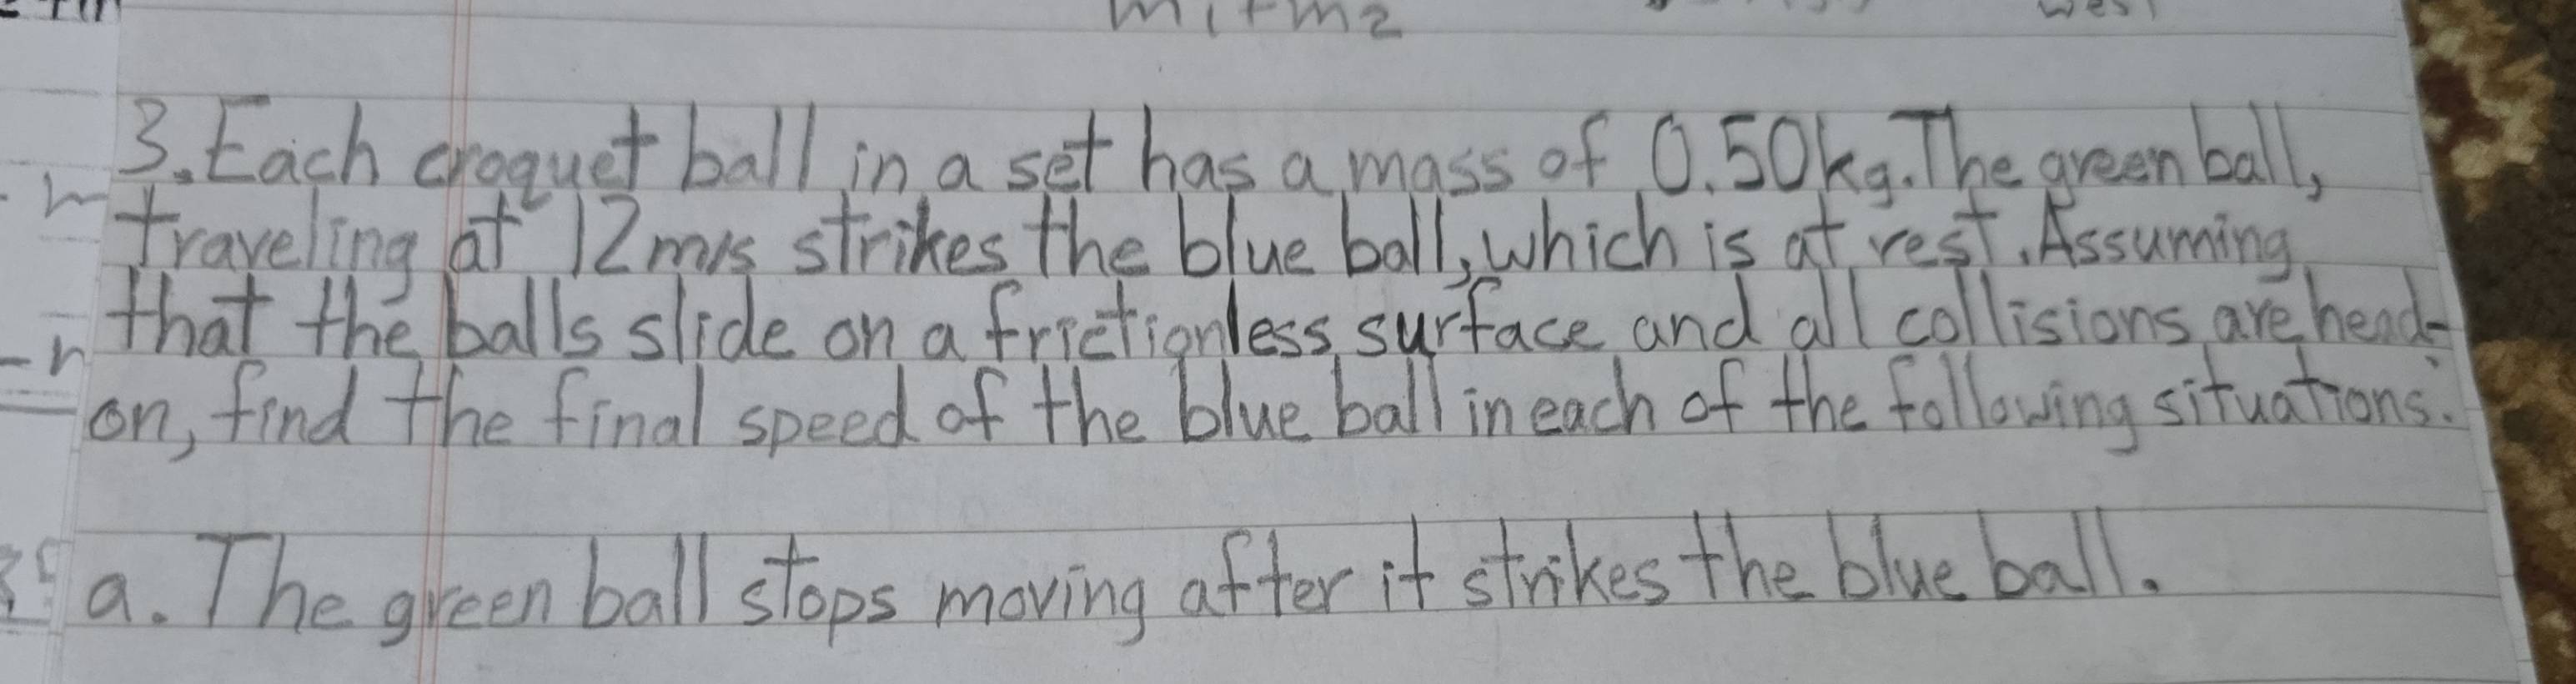 m1+m2
3. Each croquet ball in a set has a mass of 0.50kg. The green ball,
traveling at 12m/s strikes the blue ball, which is at rest. Assuming
that the balls slide on a frictionless surface and all collisions are head-
on, find the final speed of the blue ball in each of the following situations.
a. The green ball stops moving after it strikes the blue ball.